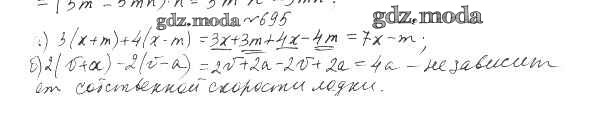 = (3m - 5mn) · n = 3m n - 5mn
gdz.moda №695 gdz.moda
а) 3(x+m)+4(x-m) = 3x+3m+4x-4m = 7x-m;
б) 2(v+a)-2(v-a) = 2v+2a-2v+2a = 4a - не зависит
от собственной скорости лодки.